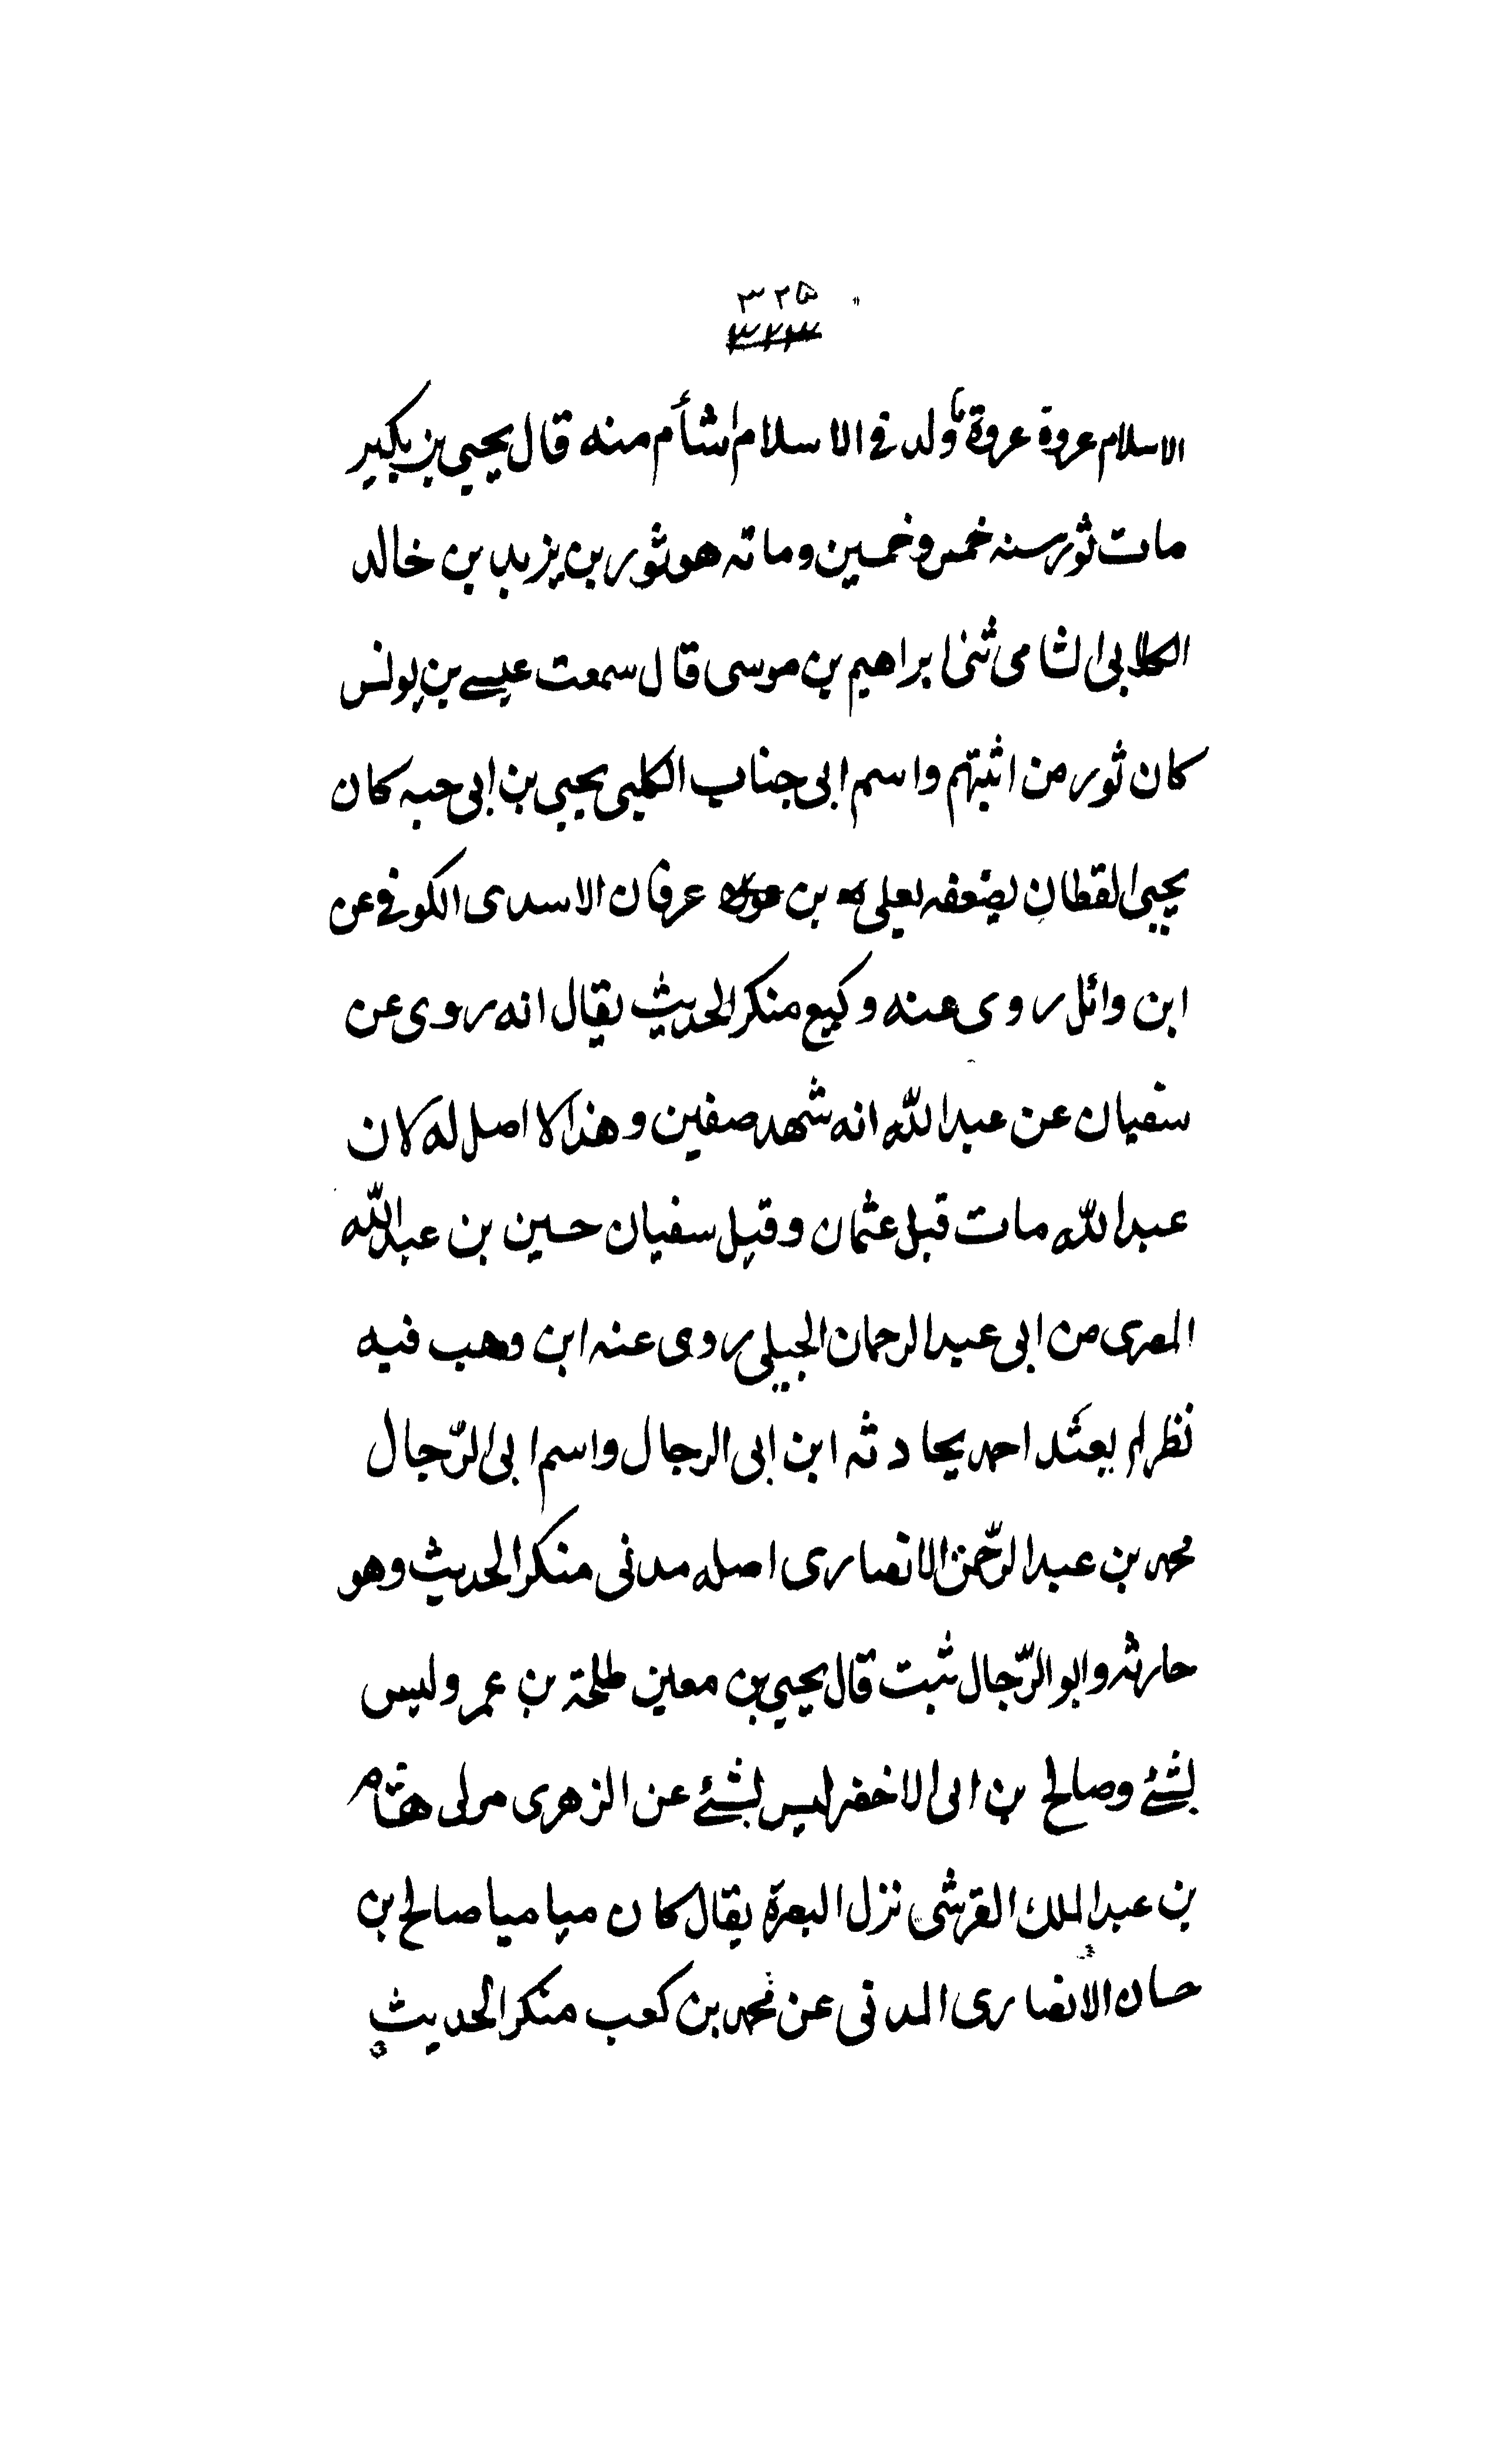 ۳۲۵
الاسلام عروة عروة ما ولد فى الاسلام اشأم منه قال يحيى بن بكير
مات ثور سنه خمس وخمسين ومائه هو ثور بن يزيد بن خالد
الكلابى الشامى ثنى ابراهيم بن موسى قال سمعت عيسے بن يونس
كان ثور من اثبتهم واسم ابى جناب الكلبى يحيى بن ابى حيه كان
يحيى القطان يضعفه يعلى بن عرفان الاسدى الكوفى عن
ابن وائل روى عنه وكيع منكر الحديث يقال انه روى عن
سفيان عن عبد الله انه شهد صفين وهذا لا اصل له لان
عبد الله مات قبل عثمان وقبل سفيان حسين بن عبد الله
المصرى من ابى عبد الرحمان الجيلى روى عنه ابن وهب فيه
نظر لم يعتد احمد بحادثه ابن ابى الرجال واسم ابى الرّجال
محمد بن عبد الرّحمن الانصارى اصله مدنى منكر الحديث وهو
حارثه وابو الرّجال ثبت قال يحيى بن معين طلحة بن عمرو ليس
بشئے وصالح بن ابى الاخضر ليس بشئے عن الزهرى مولى هشام
بن عبد الملك القرشى نزل البصرة يقال كان مياميا صالح بن
حسان الانصارى المدنى عن محمد بن كعب منكر الحديث